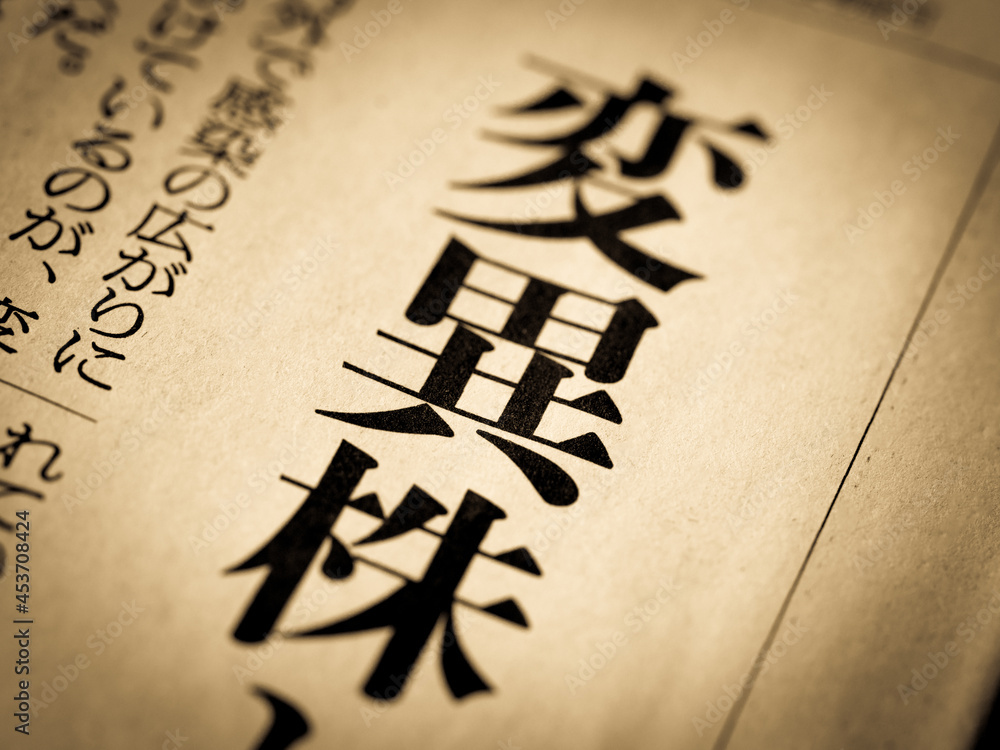 変異株
感染の広がりに
いるのが、
れ
Adobe Stock | #453708424